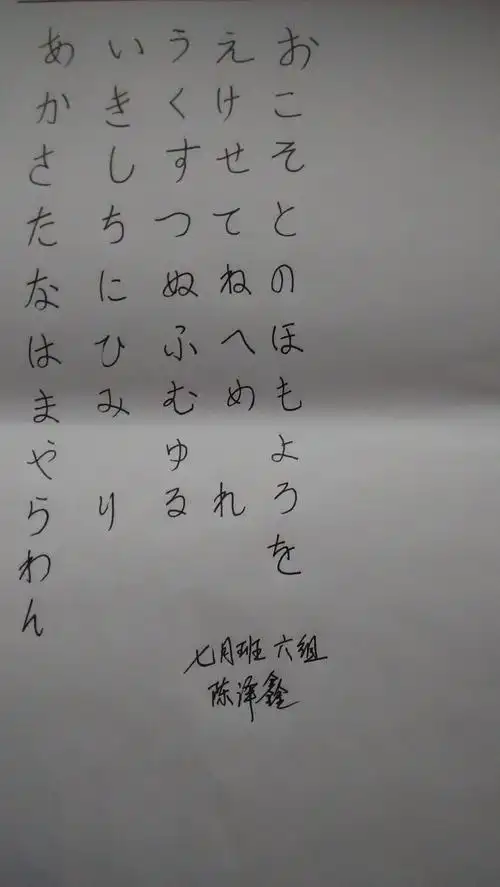 あいうえお
かきくけこ
さしすせそ
たちつてと
なにぬねの
はひふへほ
まみむめも
やゆよ
らりるれろ
わを
ん
七月班 六组
陈泽鑫